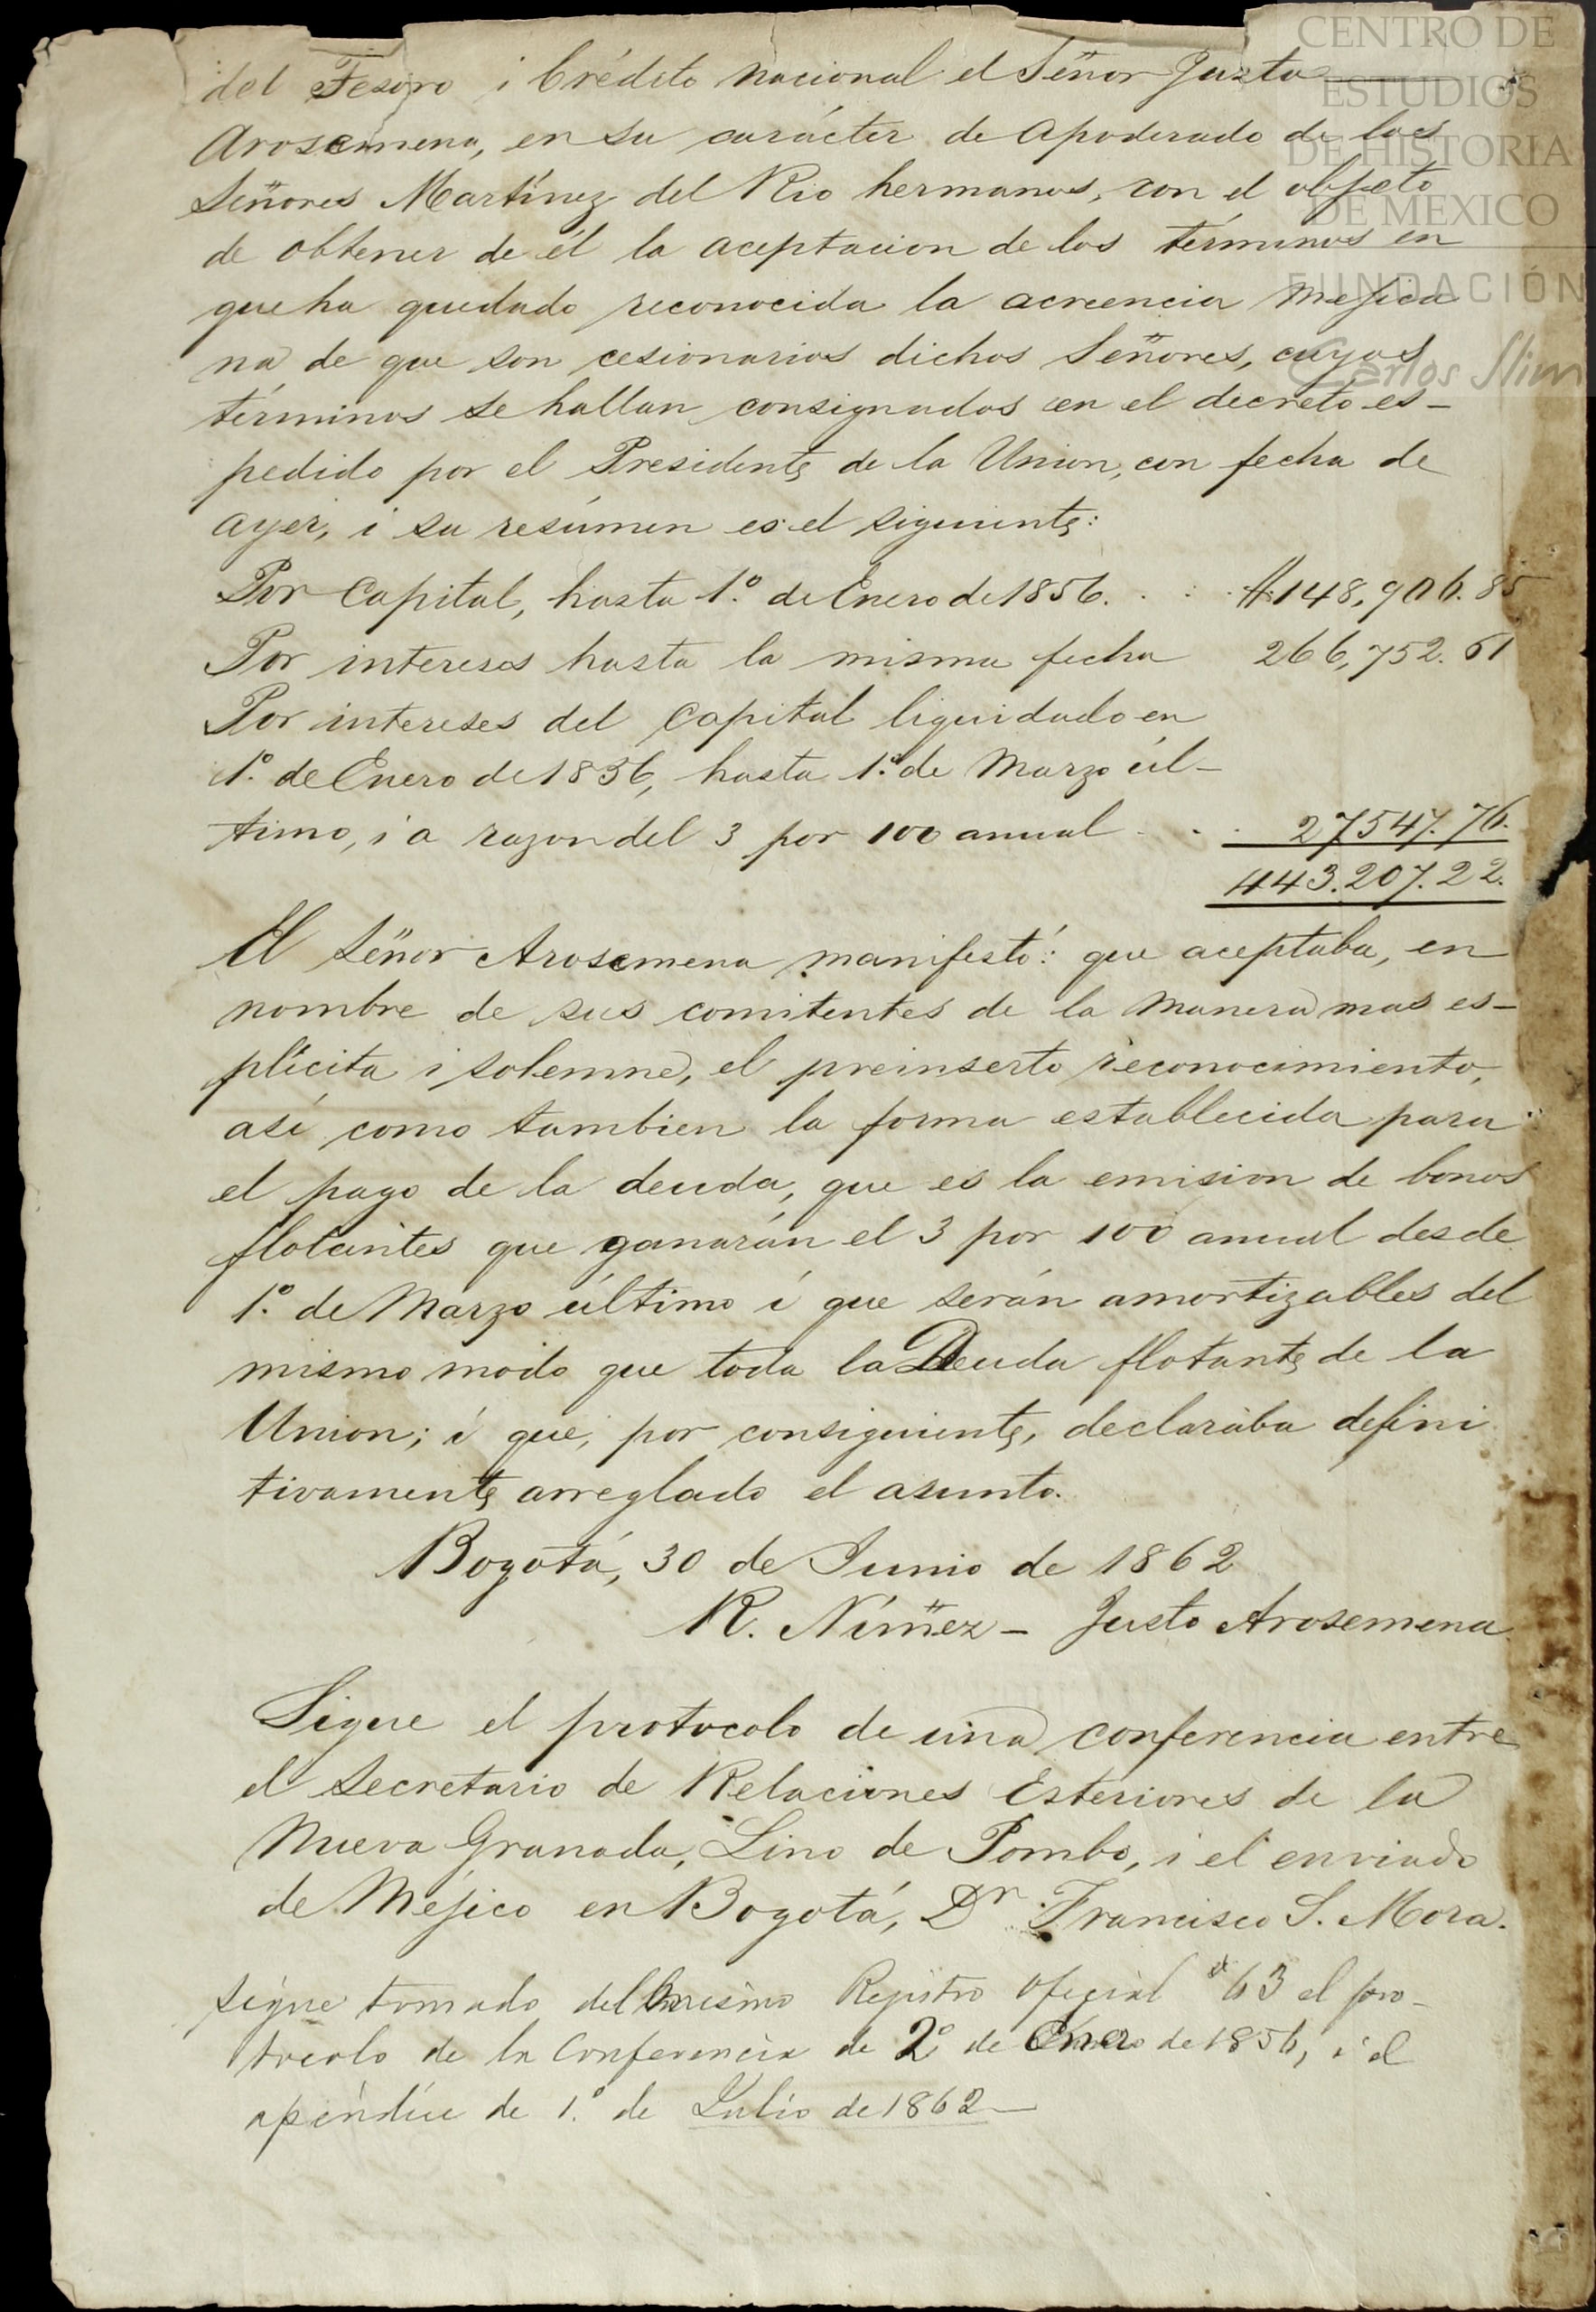 CENTRO DE
ESTUDIOS
DE HISTORIA
DE MEXICO
FUNDACIÓN
Carlos Slim
del Tesoro i Crédito nacional el Señor Justo
Arosemena, en su carácter de apoderado de los
Señores Martínez del Rio hermanos, con el objeto
de obtener de él la aceptacion de los términos en
que ha quedado reconocida la acreencia mejica
na de que son cesionarios dichos Señores, cuyos
términos se hallan consignados en el decreto es-
pedido por el Presidente de la Union, con fecha de
ayer, i su resúmen es el siguiente:
Por Capital, hasta 1º de Enero de 1856. . . . $ 148,906.85
Por intereses hasta la misma fecha 266,752.61
Por intereses del Capital liquidado en
1º de Enero de 1856, hasta 1º de Marzo úl-
timo, i a razon del 3 por 100 anual . . . 27547.76.
443.207.22.
El Señor Arosemena manifestó: que aceptaba, en
nombre de sus comitentes de la manera mas es-
plícita i solemne, el preinserto reconocimiento,
así como tambien la forma establecida para
el pago de la deuda, que es la emision de bonos
flotantes que ganarán el 3 por 100 anual desde
1º de Marzo último i que serán amortizables del
mismo modo que toda la Deuda flotante de la
Union; i que, por consiguiente, declaraba defini
tivamente arreglado el asunto.
Bogotá, 30 de Junio de 1862
R. Núñez - Justo Arosemena
Sigue el protocolo de una conferencia entre
el Secretario de Relaciones Esteriores de la
Nueva Granada, Lino de Pombo, i el enviado
de Méjico en Bogotá, Dr Francisco S. Mora.
Sigue tomado del mismo Rejistro Oficial 63 el pro-
tocolo de la Conferencia de 2º de Enero de 1856, i el
apéndice de 1º de Julio de 1862